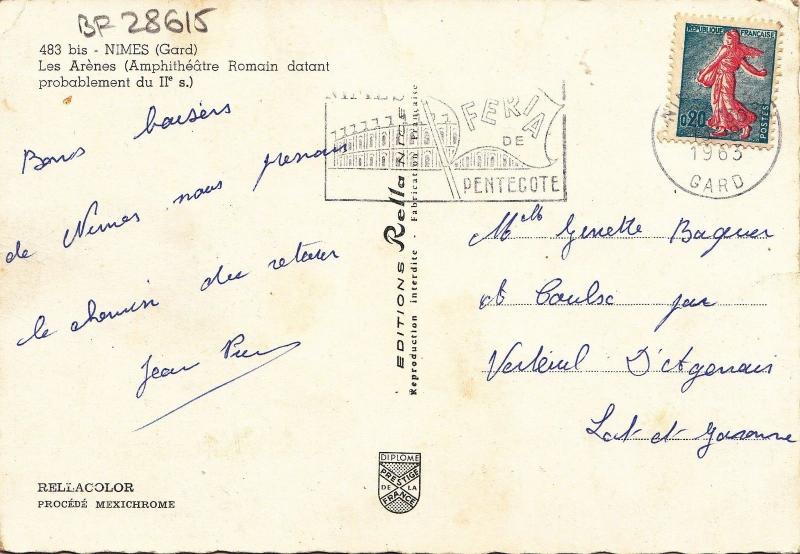 BF 28615
483 bis - NIMES (Gard)
Les Arènes (Amphithéâtre Romain datant
probablement du IIe s.)
Bons baisers
de Nimes nous prenons
le chemin du retour
Jean Pierre
RELLACOLOR
PROCÉDÉ MEXICHROME
EDITIONS Rella NICE
Reproduction interdite - Fabrication Française
DIPLOME
PRESTIGE
DE LA
FRANCE
NIMES
FERIA
DE
PENTECOTE
REPUBLIQUE FRANÇAISE
0,20
POSTES
1963
GARD
Melle Ginette Baguer
à Coulse par
Verteuil D'Agenais
Lot et Garonne